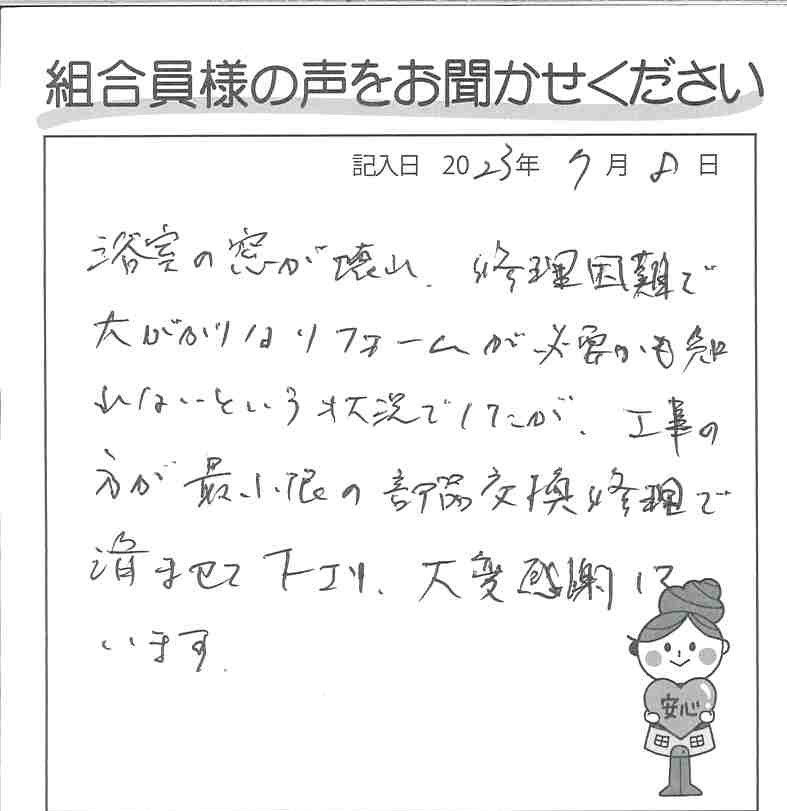 組合員様の声をお聞かせください
記入日 2023年 7月 8日
浴室の窓が壊れ、修理困難で
大がかりなリフォームが必要かも知
れないという状況でしたが、工事の
方が最小限の部品交換修理で
済ませて下さり、大変感謝して
います。
安心